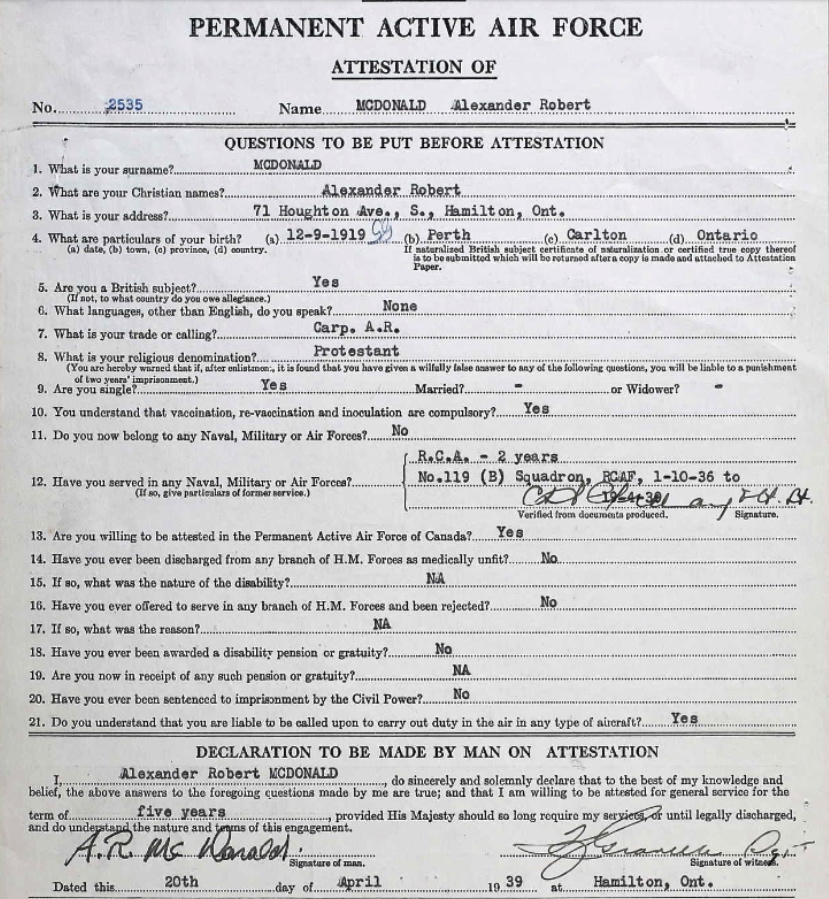 PERMANENT ACTIVE AIR FORCE
ATTESTATION OF
No. 2535 Name MCDONALD Alexander Robert
QUESTIONS TO BE PUT BEFORE ATTESTATION
1. What is your surname? MCDONALD
2. What are your Christian names? Alexander Robert
3. What is your address? 71 Houghton Ave., S., Hamilton, Ont.
4. What are particulars of your birth? (a) 12-9-1919 (b) Perth (c) Carlton (d) Ontario
(a) date, (b) town, (c) province, (d) country. If naturalized British subject certificate of naturalization or certified true copy thereof
is to be submitted which will be returned after a copy is made and attached to Attestation
Paper.
5. Are you a British subject? Yes
(If not, to what country do you owe allegiance.)
6. What languages, other than English, do you speak? None
7. What is your trade or calling? Carp. A.R.
8. What is your religious denomination? Protestant
(You are hereby warned that if, after enlistment, it is found that you have given a wilfully false answer to any of the following questions, you will be liable to a punishment
of two years' imprisonment.)
9. Are you single? Yes Married? - or Widower? -
10. You understand that vaccination, re-vaccination and inoculation are compulsory? Yes
11. Do you now belong to any Naval, Military or Air Forces? No
R.C.A. - 2 years
12. Have you served in any Naval, Military or Air Forces? No.119 (B) Squadron, RCAF, 1-10-36 to
(If so, give particulars of former service.) 19-4-39
Verified from documents produced. Signature.
13. Are you willing to be attested in the Permanent Active Air Force of Canada? Yes
14. Have you ever been discharged from any branch of H.M. Forces as medically unfit? No
15. If so, what was the nature of the disability? NA
16. Have you ever offered to serve in any branch of H.M. Forces and been rejected? No
17. If so, what was the reason? NA
18. Have you ever been awarded a disability pension or gratuity? No
19. Are you now in receipt of any such pension or gratuity? NA
20. Have you ever been sentenced to imprisonment by the Civil Power? No
21. Do you understand that you are liable to be called upon to carry out duty in the air in any type of aircraft? Yes
DECLARATION TO BE MADE BY MAN ON ATTESTATION
I, Alexander Robert MCDONALD, do sincerely and solemnly declare that to the best of my knowledge and
belief, the above answers to the foregoing questions made by me are true; and that I am willing to be attested for general service for the
term of five years, provided His Majesty should so long require my services, or until legally discharged,
and do understand the nature and terms of this engagement.
A.R. Mc Donald
Signature of man. Signature of witness.
Dated this 20th day of April 19 39 at Hamilton, Ont.